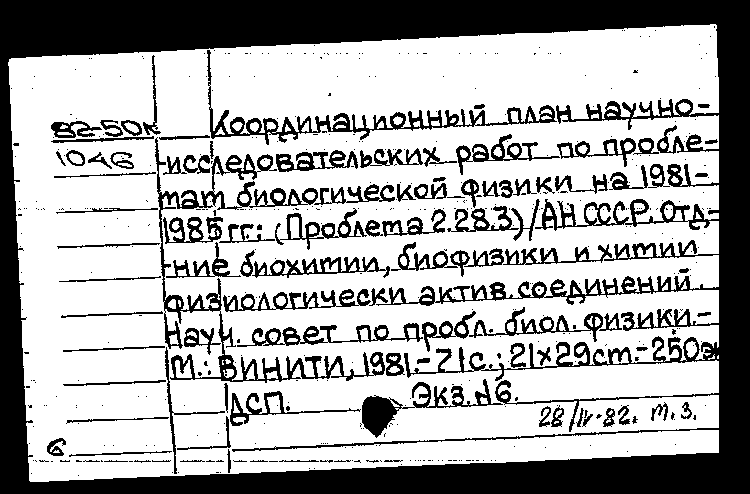 82-50к Координационный план научно-
1046 -исследовательских работ по пробле-
мам биологической физики на 1981-
1985 гг.: (Проблема 2.28.3)/АН СССР. Отд-
-ние биохимии, биофизики и химии
физиологически актив. соединений.
Науч. совет по пробл. биол. физики.-
М.: ВИНИТИ, 1981.-71с.; 21х29см.-250эк
ДСП. Экз. №6.
28/IV-82. М.З.
6